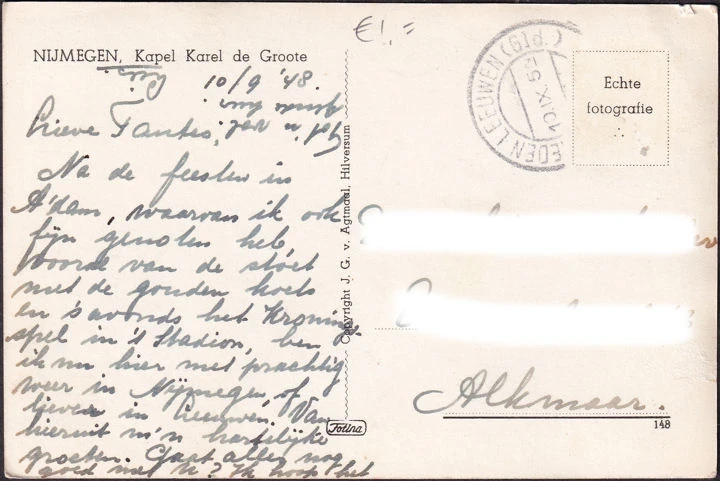 NIJMEGEN, Kapel Karel de Groote
10/9 '48.
Lieve Tantes,
Na de feesten in
A'dam, waarvan ik ook
fijn genoten heb
vooral van de stoet
met de gouden koets
en 's avonds het Kronings
spel in 't Stadion, ben
ik nu hier met prachtig
weer in Nijmegen, of
liever in Leeuwen. Van
hieruit m'n hartelijke
groeten. Gaat alles nog
goed met u? Ik hoop het
Copyright J. G. v. Agtmaal, Hilversum
Fotina
€1,=
EDEN LEEUWEN (GLD.)
10.IX.5
Echte
fotografie
Alkmaar.
148